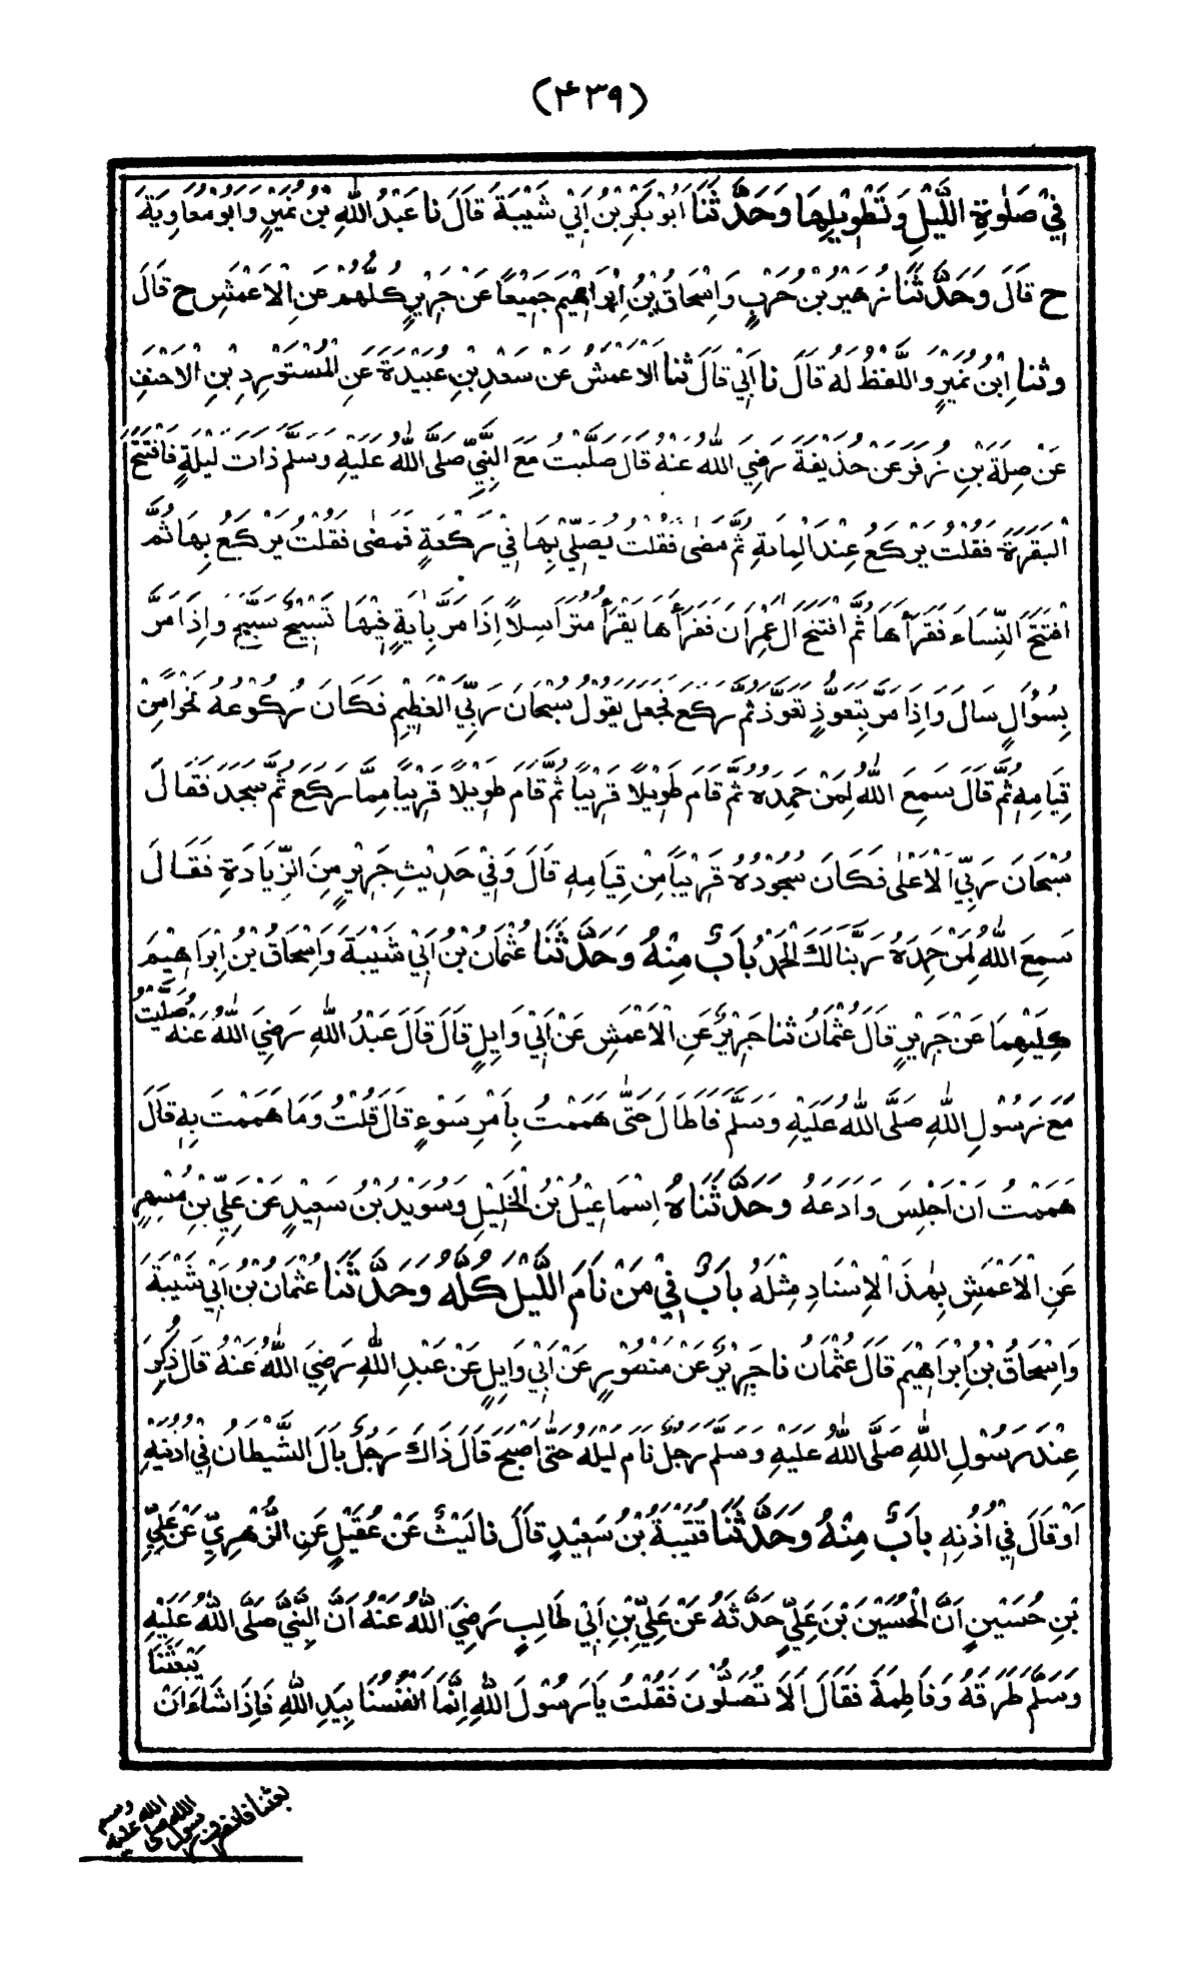 (۴۳۹)
فِيْ صَلٰوةِ اللَّيْلِ وَتَطْوِيْلِهَا وَحَدَّثَنَا اَبُوْ بَكْرِ بْنُ اَبِيْ شَيْبَةَ قَالَ نَا عَبْدُ اللهِ بْنُ نُمَيْرٍ وَاَبُوْ مُعَاوِيَةَ
ح قَالَ وَحَدَّثَنَا زُهَيْرُ بْنُ حَرْبٍ وَاِسْحَاقُ بْنُ اِبْرَاهِيْمَ جَمِيْعًا عَنْ جَرِيْرٍ كُلُّهُمْ عَنِ الْاَعْمَشِ ح قَالَ
وثنا اِبْنُ نُمَيْرٍ وَاللَّفْظُ لَهُ قَالَ نَا اَبِيْ قَالَ ثنا الْاَعْمَشُ عَنْ سَعْدِ بْنِ عُبَيْدَةَ عَنِ الْمُسْتَوْرِدِ بْنِ الْاَحْنَفِ
عَنْ صِلَةَ بْنِ زُفَرَ عَنْ حُذَيْفَةَ رَضِيَ اللهُ عَنْهُ قَالَ صَلَّيْتُ مَعَ النَّبِيِّ صَلَّى اللهُ عَلَيْهِ وَسَلَّمَ ذَاتَ لَيْلَةٍ فَافْتَتَحَ
الْبَقَرَةَ فَقُلْتُ يَرْكَعُ عِنْدَ الْمِائَةِ ثُمَّ مَضٰى فَقُلْتُ يُصَلِّيْ بِهَا فِيْ رَكْعَةٍ فَمَضٰى فَقُلْتُ يَرْكَعُ بِهَا ثُمَّ
افْتَتَحَ النِّسَاءَ فَقَرَأَهَا ثُمَّ افْتَتَحَ اٰلَ عِمْرَانَ فَقَرَأَهَا يَقْرَأُ مُتَرَاسِلًا اِذَا مَرَّ بِاٰيَةٍ فِيْهَا تَسْبِيْحٌ سَبَّحَ وَاِذَا مَرَّ
بِسُؤَالٍ سَاَلَ وَاِذَا مَرَّ بِتَعَوُّذٍ تَعَوَّذَ ثُمَّ رَكَعَ فَجَعَلَ يَقُوْلُ سُبْحَانَ رَبِّيَ الْعَظِيْمِ فَكَانَ رُكُوْعُهُ نَحْوًا مِنْ
قِيَامِهِ ثُمَّ قَالَ سَمِعَ اللهُ لِمَنْ حَمِدَهُ ثُمَّ قَامَ طَوِيْلًا قَرِيْبًا ثُمَّ قَامَ طَوِيْلًا قَرِيْبًا مِمَّا رَكَعَ ثُمَّ سَجَدَ فَقَالَ
سُبْحَانَ رَبِّيَ الْاَعْلٰى فَكَانَ سُجُوْدُهُ قَرِيْبًا مِنْ قِيَامِهِ قَالَ وَفِيْ حَدِيْثِ جَرِيْرٍ مِنَ الزِّيَادَةِ فَقَالَ
سَمِعَ اللهُ لِمَنْ حَمِدَهُ رَبَّنَا لَكَ الْحَمْدُ بَابٌ مِنْهُ وَحَدَّثَنَا عُثْمَانُ بْنُ اَبِيْ شَيْبَةَ وَاِسْحَاقُ بْنُ اِبْرَاهِيْمَ
كِلَيْهِمَا عَنْ جَرِيْرٍ قَالَ عُثْمَانُ ثنا جَرِيْرٌ عَنِ الْاَعْمَشِ عَنْ اَبِيْ وَايِلٍ قَالَ قَالَ عَبْدُ اللهِ رَضِيَ اللهُ عَنْهُ صَلَّيْتُ
مَعَ رَسُوْلِ اللهِ صَلَّى اللهُ عَلَيْهِ وَسَلَّمَ فَاَطَالَ حَتّٰى هَمَمْتُ بِاَمْرِ سَوْءٍ قَالَ قُلْتُ وَمَا هَمَمْتَ بِهٖ قَالَ
هَمَمْتُ اَنْ اَجْلِسَ وَاَدَعَهُ وَحَدَّثَنَاهُ اِسْمَاعِيْلُ بْنُ الْخَلِيْلِ وَسُوَيْدُ بْنُ سَعِيْدٍ عَنْ عَلِيِّ بْنِ مُسْهِرٍ
عَنِ الْاَعْمَشِ بِهٰذَا الْاِسْنَادِ مِثْلَهُ بَابٌ فِيْ مَنْ نَامَ اللَّيْلَ كُلَّهُ وَحَدَّثَنَا عُثْمَانُ بْنُ اَبِيْ شَيْبَةَ
وَاِسْحَاقُ بْنُ اِبْرَاهِيْمَ قَالَ عُثْمَانُ نا جَرِيْرٌ عَنْ مَنْصُوْرٍ عَنْ اَبِيْ وَايِلٍ عَنْ عَبْدِ اللهِ رَضِيَ اللهُ عَنْهُ قَالَ ذُكِرَ
عِنْدَ رَسُوْلِ اللهِ صَلَّى اللهُ عَلَيْهِ وَسَلَّمَ رَجُلٌ نَامَ لَيْلَهُ حَتّٰى اَصْبَحَ قَالَ ذَاكَ رَجُلٌ بَالَ الشَّيْطَانُ فِيْ اُذُنَيْهِ
اَوْ قَالَ فِيْ اُذُنِهِ بَابٌ مِنْهُ وَحَدَّثَنَا قُتَيْبَةُ بْنُ سَعِيْدٍ قَالَ نا لَيْثٌ عَنْ عُقَيْلٍ عَنِ الزُّهْرِيِّ عَنْ عَلِيِّ
بْنِ حُسَيْنٍ اَنَّ الْحُسَيْنَ بْنَ عَلِيٍّ حَدَّثَهُ عَنْ عَلِيِّ بْنِ اَبِيْ طَالِبٍ رَضِيَ اللهُ عَنْهُ اَنَّ النَّبِيَّ صَلَّى اللهُ عَلَيْهِ
وَسَلَّمَ طَرَقَهُ وَفَاطِمَةَ فَقَالَ اَلَا تُصَلُّونَ فَقُلْتُ يَا رَسُوْلَ اللهِ اِنَّمَا اَنْفُسُنَا بِيَدِ اللهِ فَاِذَا شَاءَ اَنْ يَبْعَثَنَا
بعثنا فانصرف رسول الله صلى الله عليه وسلم